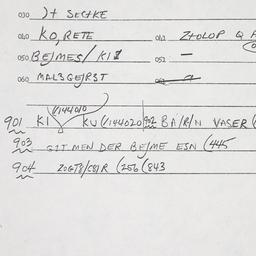 030 )+ SECTKE
040 KO, RETE 041 ZTOLOP Q
050 BEJMES/KI1 052 —
060 MALSGEJRST
(/144010
901 KI KU (/144020 902 BA/R/N VASER (
903 SIT MEN DER BE/ME ESN (445
904 ZOGT8/C8)R (256 (843